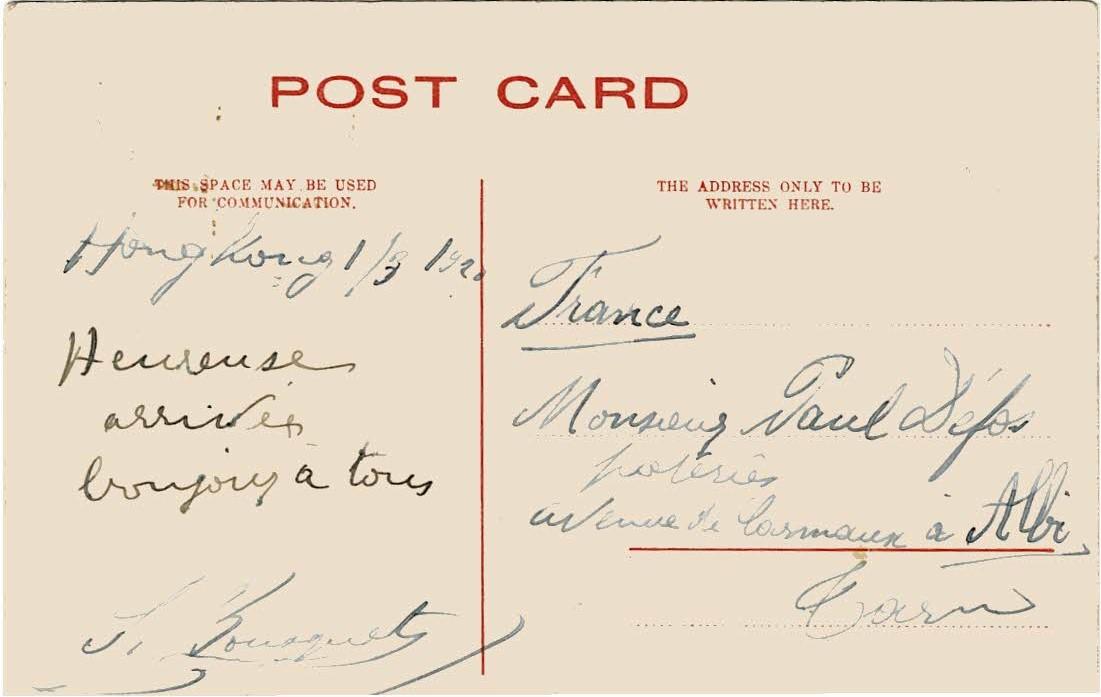 POST CARD
THIS SPACE MAY BE USED
FOR COMMUNICATION.
Hong Kong 1/3 1920
Heureuse
arrivée
bonjour à tous
THE ADDRESS ONLY TO BE
WRITTEN HERE.
France
Monsieur Paul Défos
poteries
avenue de Carmaux à Albi
Tarn